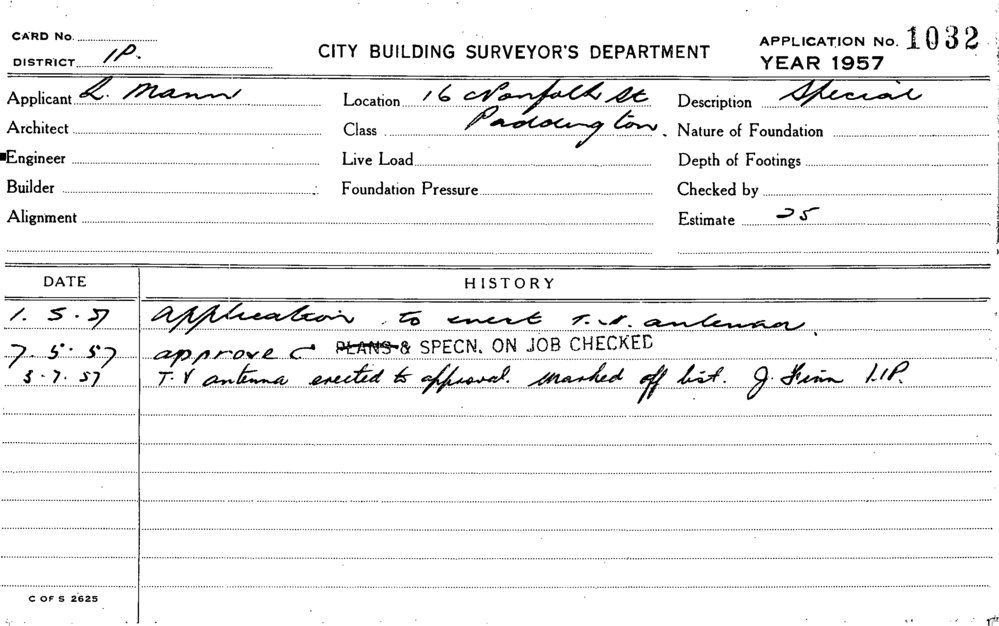 CARD No.
DISTRICT 1P.
CITY BUILDING SURVEYOR'S DEPARTMENT
APPLICATION No. 1032
YEAR 1957
Applicant L. Mann Location 16 Norfolk St Description Special
Architect Class Paddington. Nature of Foundation
Engineer Live Load Depth of Footings
Builder Foundation Pressure Checked by
Alignment Estimate 25
DATE HISTORY
1. 5. 57 Application to erect T.V. antenna.
7. 5. 57 approve PLANS & SPECN. ON JOB CHECKED
3. 7. 57 T.V antenna erected to approval. Marked off list. J. Finn 1.1P.
C OF S 2625